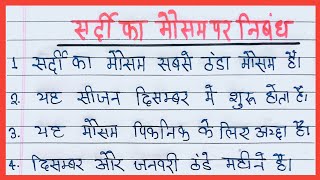 सर्दी का मौसम पर निबंध
1. सर्दी का मौसम सबसे ठंडा मौसम है।
2. यह सीजन दिसम्बर में शुरू होता है।
3. यह मौसम पिकनिक के लिए अच्छा है।
4. दिसम्बर और जनवरी ठंडे महीने है।